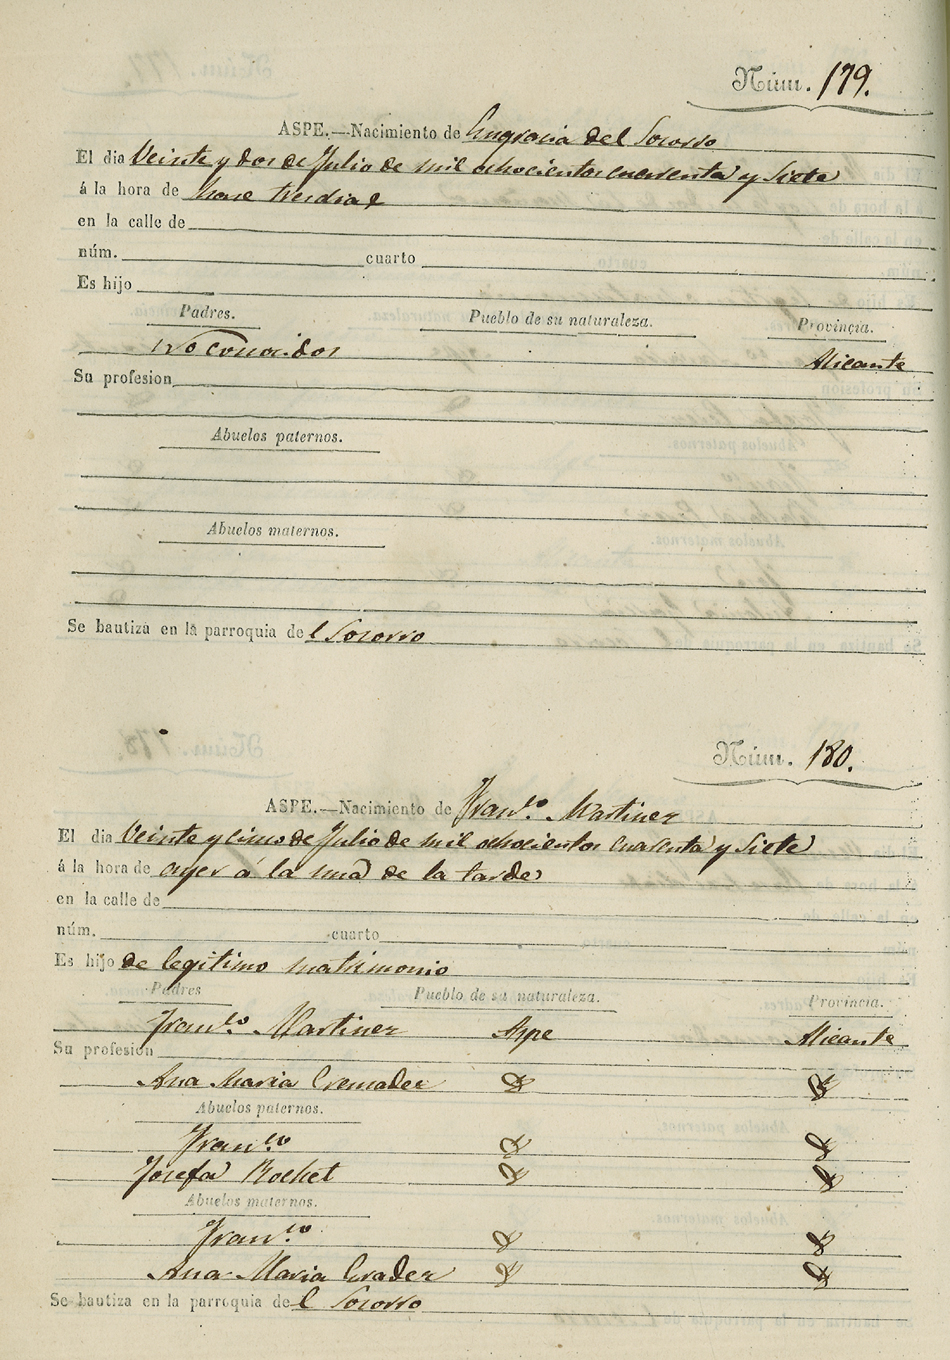 Núm. 179.
ASPE.—Nacimiento de Engracia del Socorro
El dia Veinte y dos de Julio de mil ochocientos cuarenta y Siete
á la hora de hace tres dias
en la calle de
núm. cuarto
Es hijo
Padres. Pueblo de su naturaleza. Provincia.
No conocidos Alicante
Su profesion
Abuelos paternos.
Abuelos maternos.
Se bautiza en la parroquia del Socorro
Núm. 180.
ASPE.—Nacimiento de Fran.co Martinez
El dia Veinte y cinco de Julio de mil ochocientos cuarenta y Siete
á la hora de ayer á la una de la tarde
en la calle de
núm. cuarto
Es hijo de legitimo matrimonio
Padres Pueblo de su naturaleza. Provincia.
Fran.co Martinez Aspe Alicante
Su profesion
Ana Maria Cremades
Abuelos paternos.
Fran.co
Josefa
Abuelos maternos.
Fran.co
Ana Maria
Se bautiza en la parroquia del Socorro